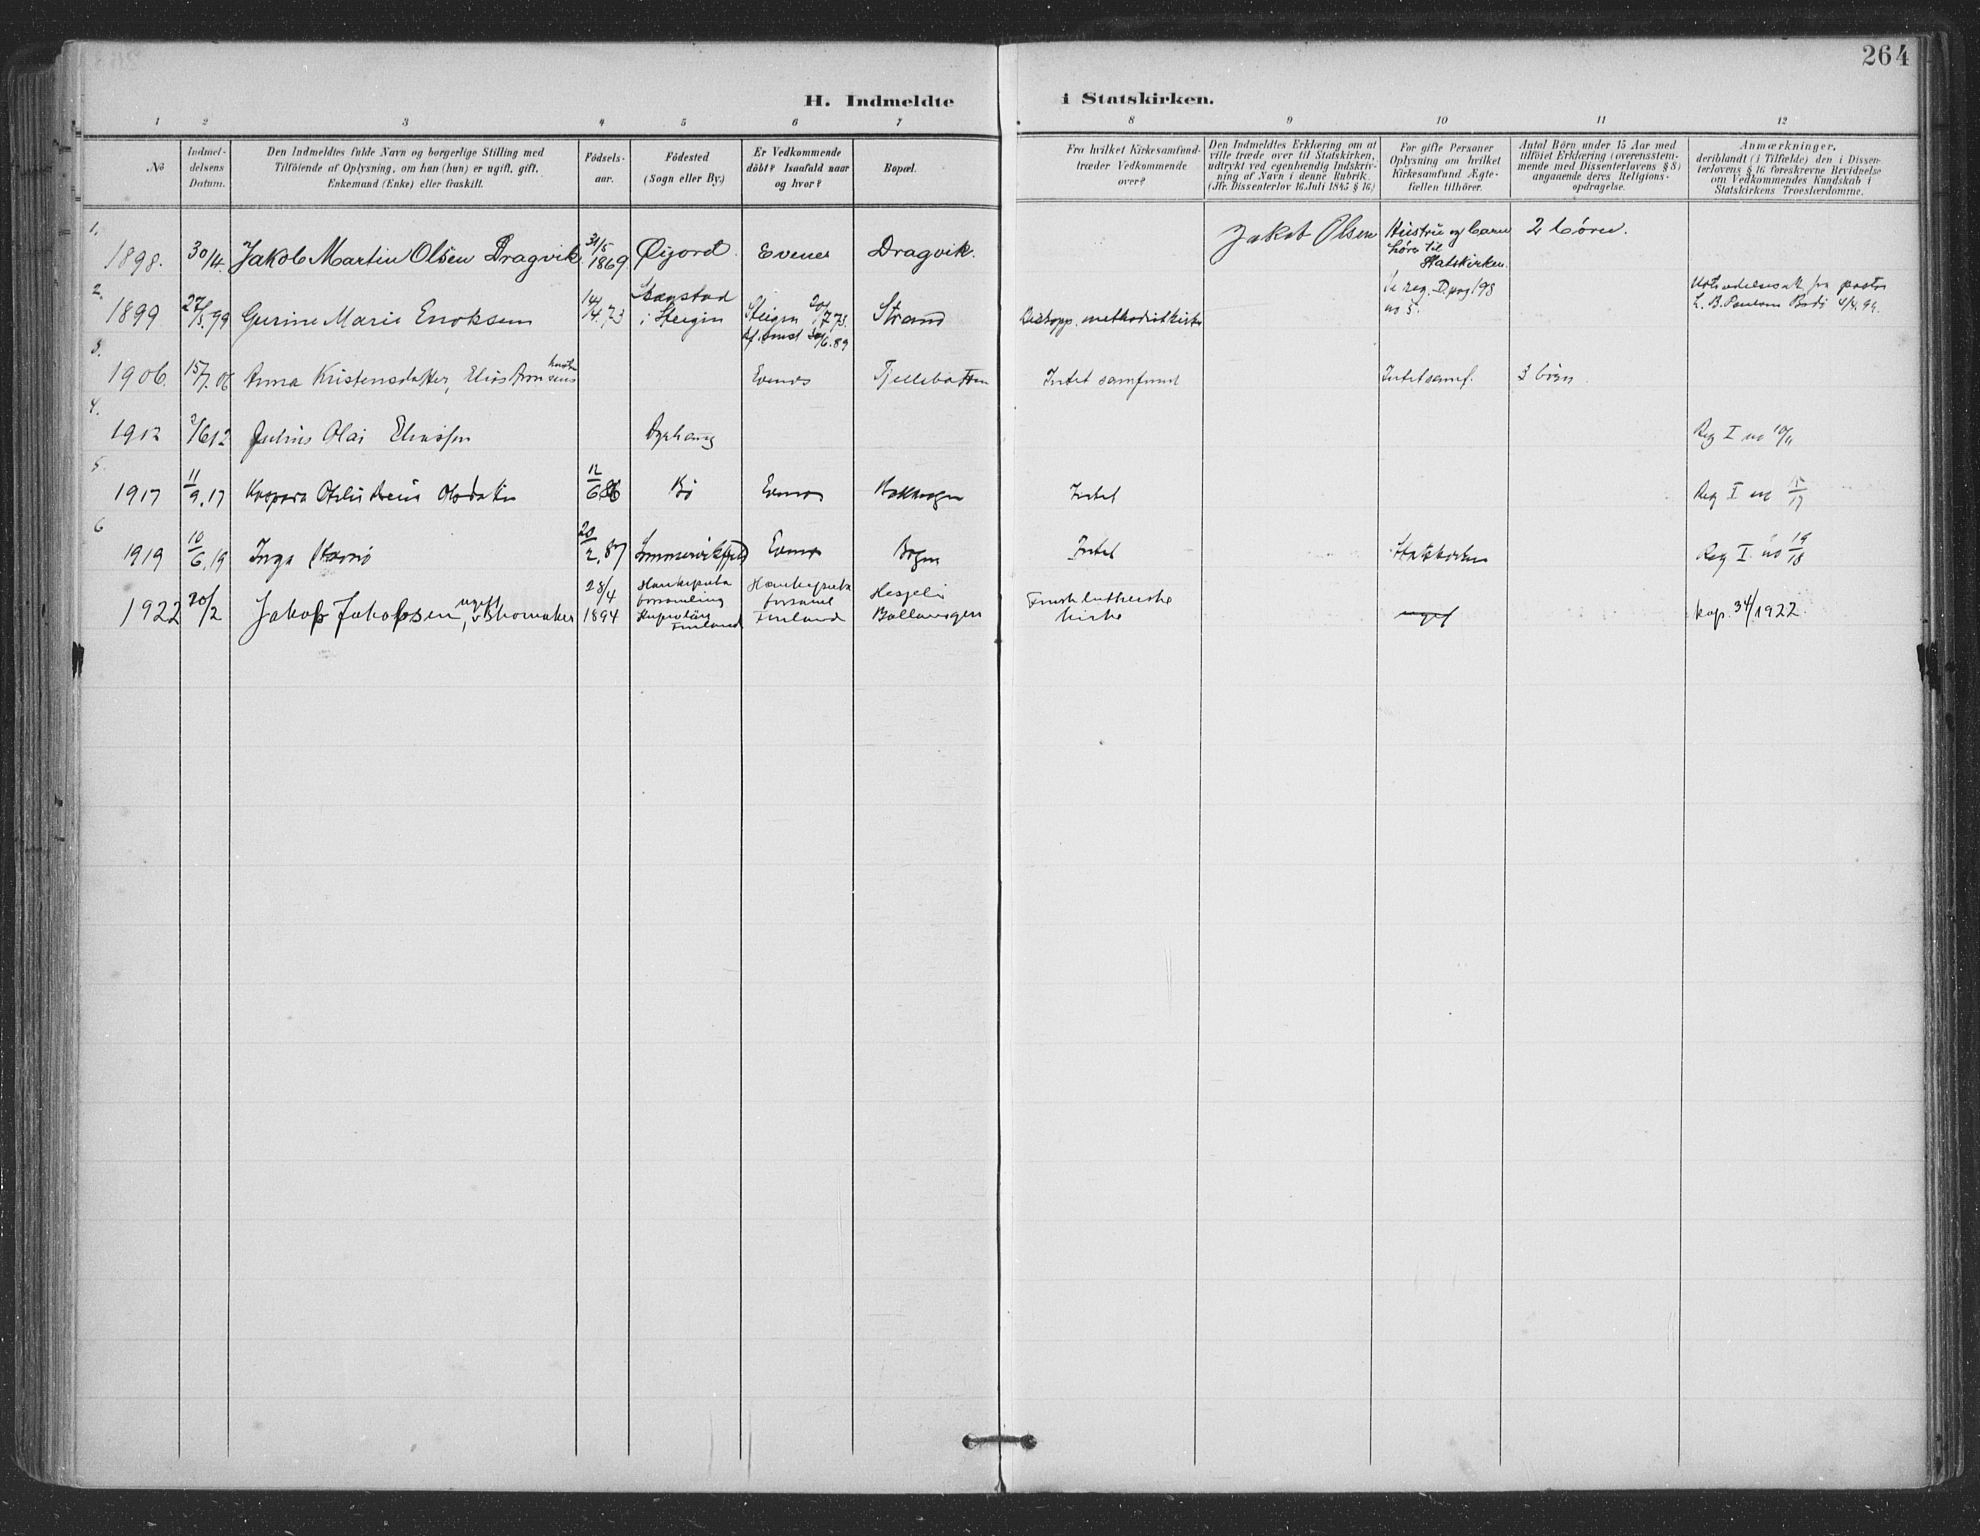 264
H. Indmeldte i Statskirken.
1 2 3 4 5 6 7 8 9 10 11 12
No
Indmel-
delsens
Datum.
Den Indmeldtes fulde Navn og borgerlige Stilling med
Tilföiende af Oplysning, om han (hun) er ugift, gift,
Enkemand (Enke) eller fraskilt.
Födsels-
aar.
Födested
(Sogn eller By.)
Er Vedkommende
döbt? Isaafald naar
og hvor?
Bopæl.
Fra hvilket Kirkesamfund
træder Vedkommende
over?
Den Indmeldtes Erklæring om at
ville træde over til Statskirken,
udtrykt ved egenhændig Indskriv-
ning af Navn i denne Rubrik.
(Jfr. Dissenterlov 16 Juli 1845 § 16)
For gifte Personer
Oplysning om hvilket
Kirkesamfund Ægte-
fællen tilhörer.
Antal Börn under 15 Aar med
tilföiet Erklæring (overensstem-
mende med Dissenterlovens § 8)
angaaende deres Religions-
opdragelse.
Anmærkninger,
deriblandt (i Tilfælde) den i Dissen-
terlovens § 16 foreskrevne Bevidnelse
om Vedkommendes Kundskab i
Statskirkens Troeslærdomme.
1.
1898. 30/4. Jakob Martin Olsen Dragvik 31/5 1869 Öijord Evenes Dragvik. Jakob Olsen Hustru og barn
hører til
Statskirken. 2 börn.
2.
1899 27/5.99 Gurine Marie Enoksen 14/4.73 i Steigen Steigen 20/7 73. Strand methodistkirke reg. D pag 198
no 5. pastor
L. B. Bodö 4/4.99.
3.
1906. 15/7.06 Anna Kristensdatter, Elias Aronsens hustru Evenes Fjeldbotten Intet samfund Intet samf. 3 børn
4.
1912 2/6 12 Julius Olai Eliassen Reg I no 10/11
5.
1917 11/9.17 Kaspara Olsdatter 12/6 86 Bö Evenes Intet Reg I no 15/17
6
1919 10/6.19 Inga 20/2.87 Evenes Bogen Intet Statskirken Reg I. no 19/18
1922 20/2 Jakob Jakobsen, ugift skomaker 28/4
1894 forsamling
Finland forsaml
Finland Ballangen Finsk lutherske
kirke ugift kop. 34/1922.